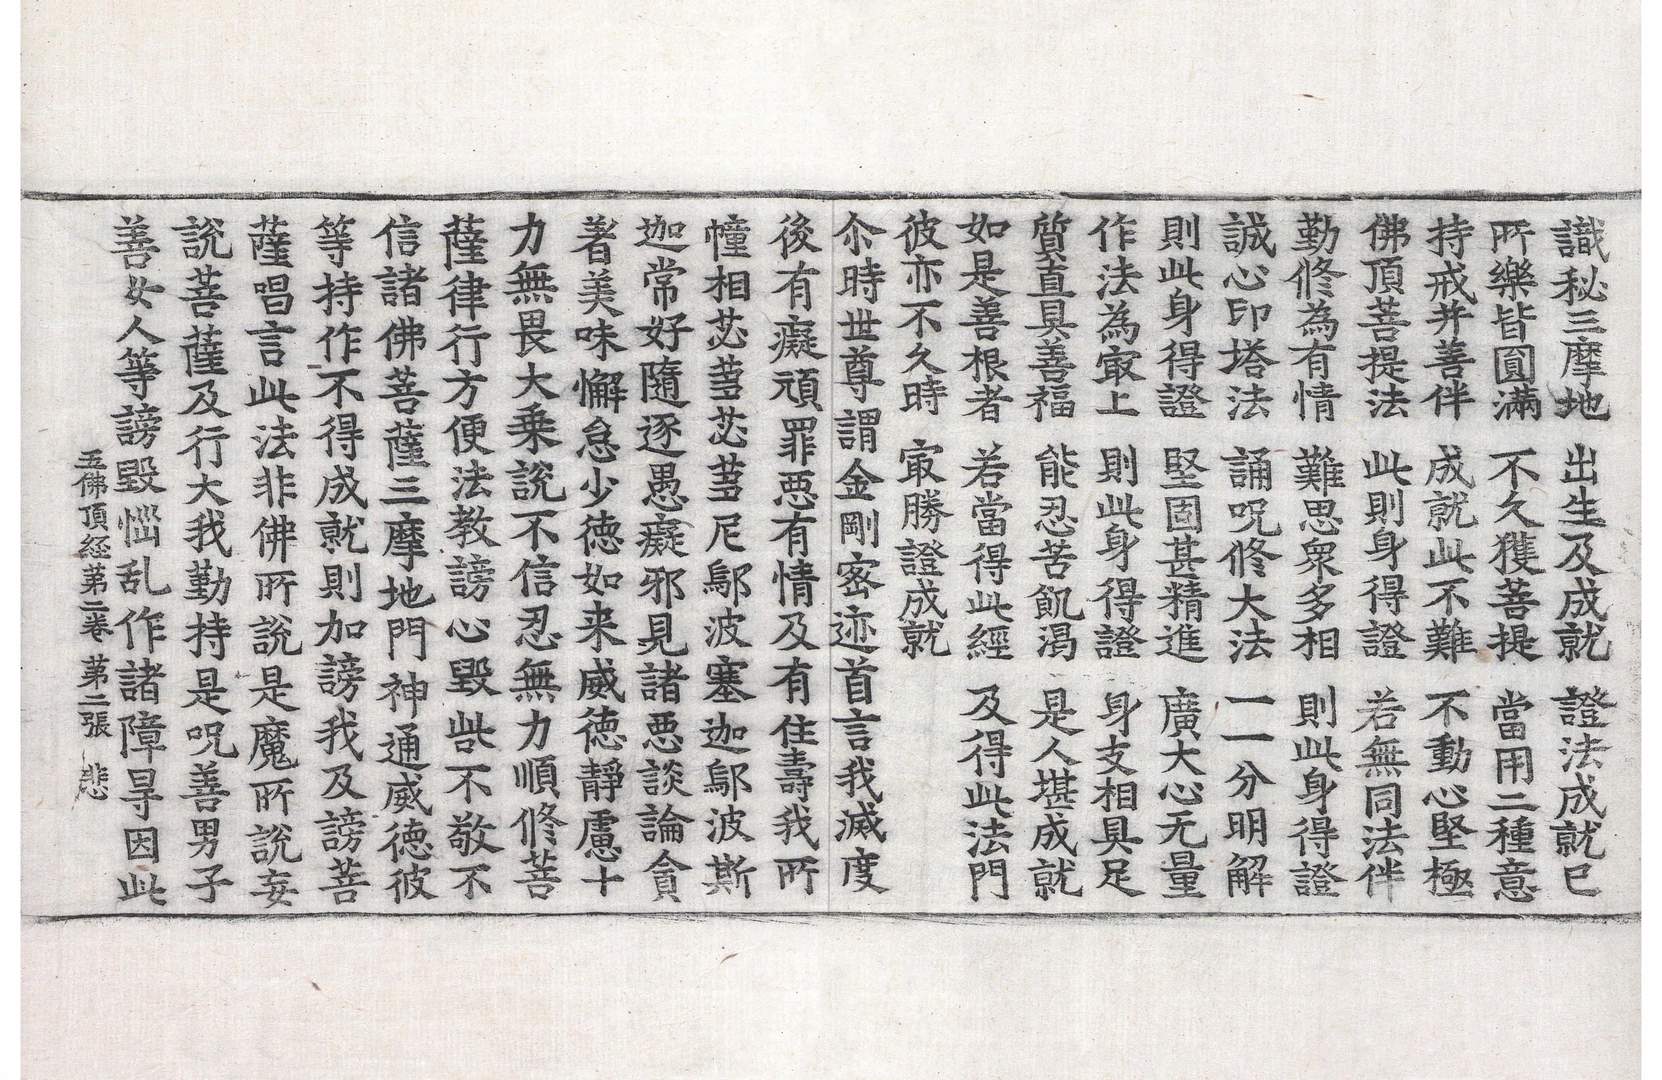 識秘三摩地 出生及成就 證法成就已
所樂皆圓滿 不久獲菩提 當用二種意
持戒并善伴 成就此不難 不動心堅極
佛頂菩提法 此則身得證 若無同法伴
勤修為有情 難思衆多相 則此身得證
誠心印塔法 誦呪修大法 一一分明解
則此身得證 堅固甚精進 廣大心无量
作法為㝡上 則此身得證 身支相具足
質直具善福 能忍苦飢渴 是人堪成就
如是善根者 若當得此經 及得此法門
彼亦不久時 㝡勝證成就
尒時世尊謂金剛密迹首言我滅度
後有癡頑罪悪有情及有住壽我所
幢相苾蒭苾蒭尼鄔波塞迦鄔波斯
迦常好隨逐愚癡邪見諸悪談論貪
著美味懈怠少德如来威德靜慮十
力無畏大乗說不信忍無力順修菩
薩律行方便法教謗心毀呰不敬不
信諸佛菩薩三摩地門神通威德彼
等持作不得成就則加謗我及謗菩
薩唱言此法非佛所說是魔所說妄
說菩薩及行大我勤持是呪善男子
善女人等謗毀惱乱作諸障㝵因此
五佛頂経第二卷 第二張 悲